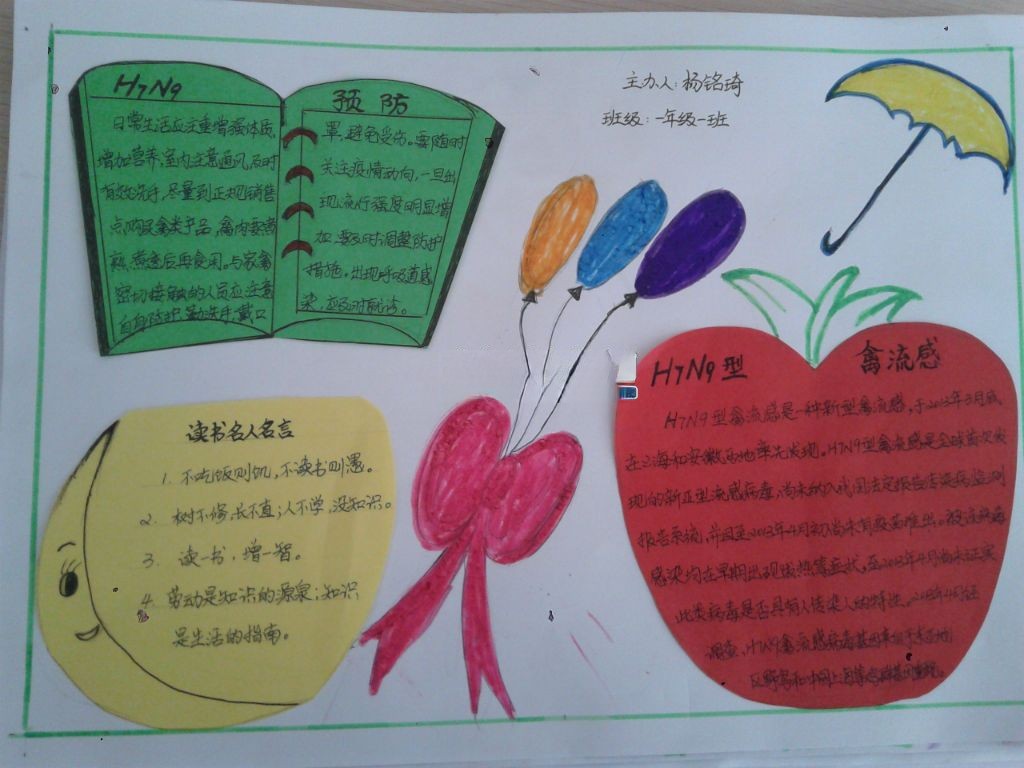 H7N9
日常生活应注重增强体质,
增加营养,室内注意通风,及时
有效洗手,尽量到正规销售
点购买禽类产品,禽肉要煮
熟、煮透后再食用。与家禽
密切接触的人员应注意
自身防护,勤洗手,戴口
预 防
罩,避免受伤。要随时
关注疫情动向,一旦出
现流行强度明显增
加,要及时调整防护
措施。出现呼吸道感
染,应及时就诊。
主办人:杨铭琦
班级:一年级一班
读书名人名言
1. 不吃饭则饥,不读书则愚。
2. 树不修,长不直;人不学,没知识。
3. 读一书,增一智。
4. 劳动是知识的源泉;知识
是生活的指南。
H7N9型 禽流感
H7N9型禽流感是一种新型禽流感,于2013年3月底
在上海和安徽两地率先发现。H7N9型禽流感是全球首次发
现的新亚型流感病毒,尚未纳入我国法定报告传染病监测
报告系统,并且至2013年4月初尚未有疫苗推出。被该病毒
感染均在早期出现发热等症状,至2013年4月尚未证实
此类病毒是否具有人传染人的特性。2013年4月经
调查,H7N9禽流感病毒基因来自于东亚地
区野鸟和中国上海